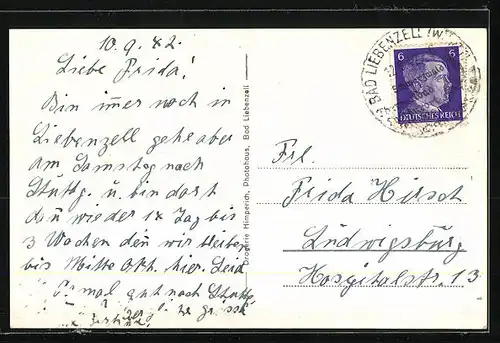 10.9.42.
Liebe Frida!
Bin immer noch in
Liebenzell gehe aber
am Samstag nach
Stuttg. u. bin dort
du wieder 14 Tag bis
3 Wochen den wir bleiben
bis Mitte Okt. hier. Leid
mal gut nach Stuttg.
grüsst
Drogerie Himperich, Photohaus, Bad Liebenzell
BAD LIEBENZELL
6 6
DEUTSCHES REICH
Frl.
Frida Hirsch
Ludwigsburg
Hospitalstr. 13